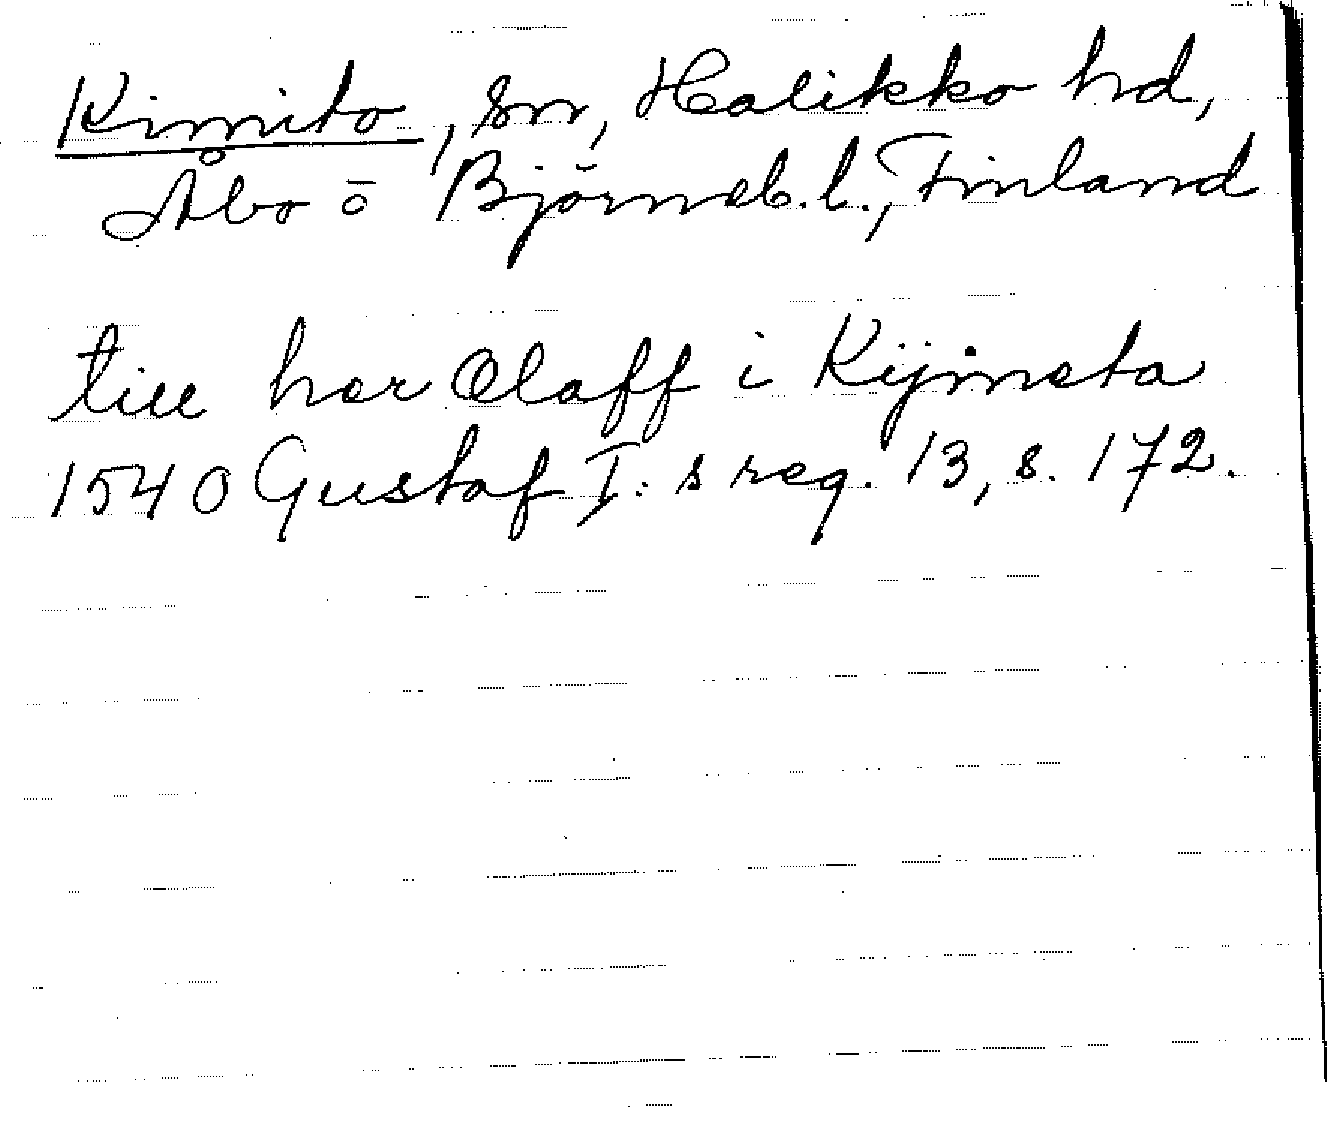 Kimito, sn, Halikko hd,
Åbo ō Björneb. l., Finland
till her Olaff i Kijmeta
1540 Gustaf I:s reg. 13, s. 172.